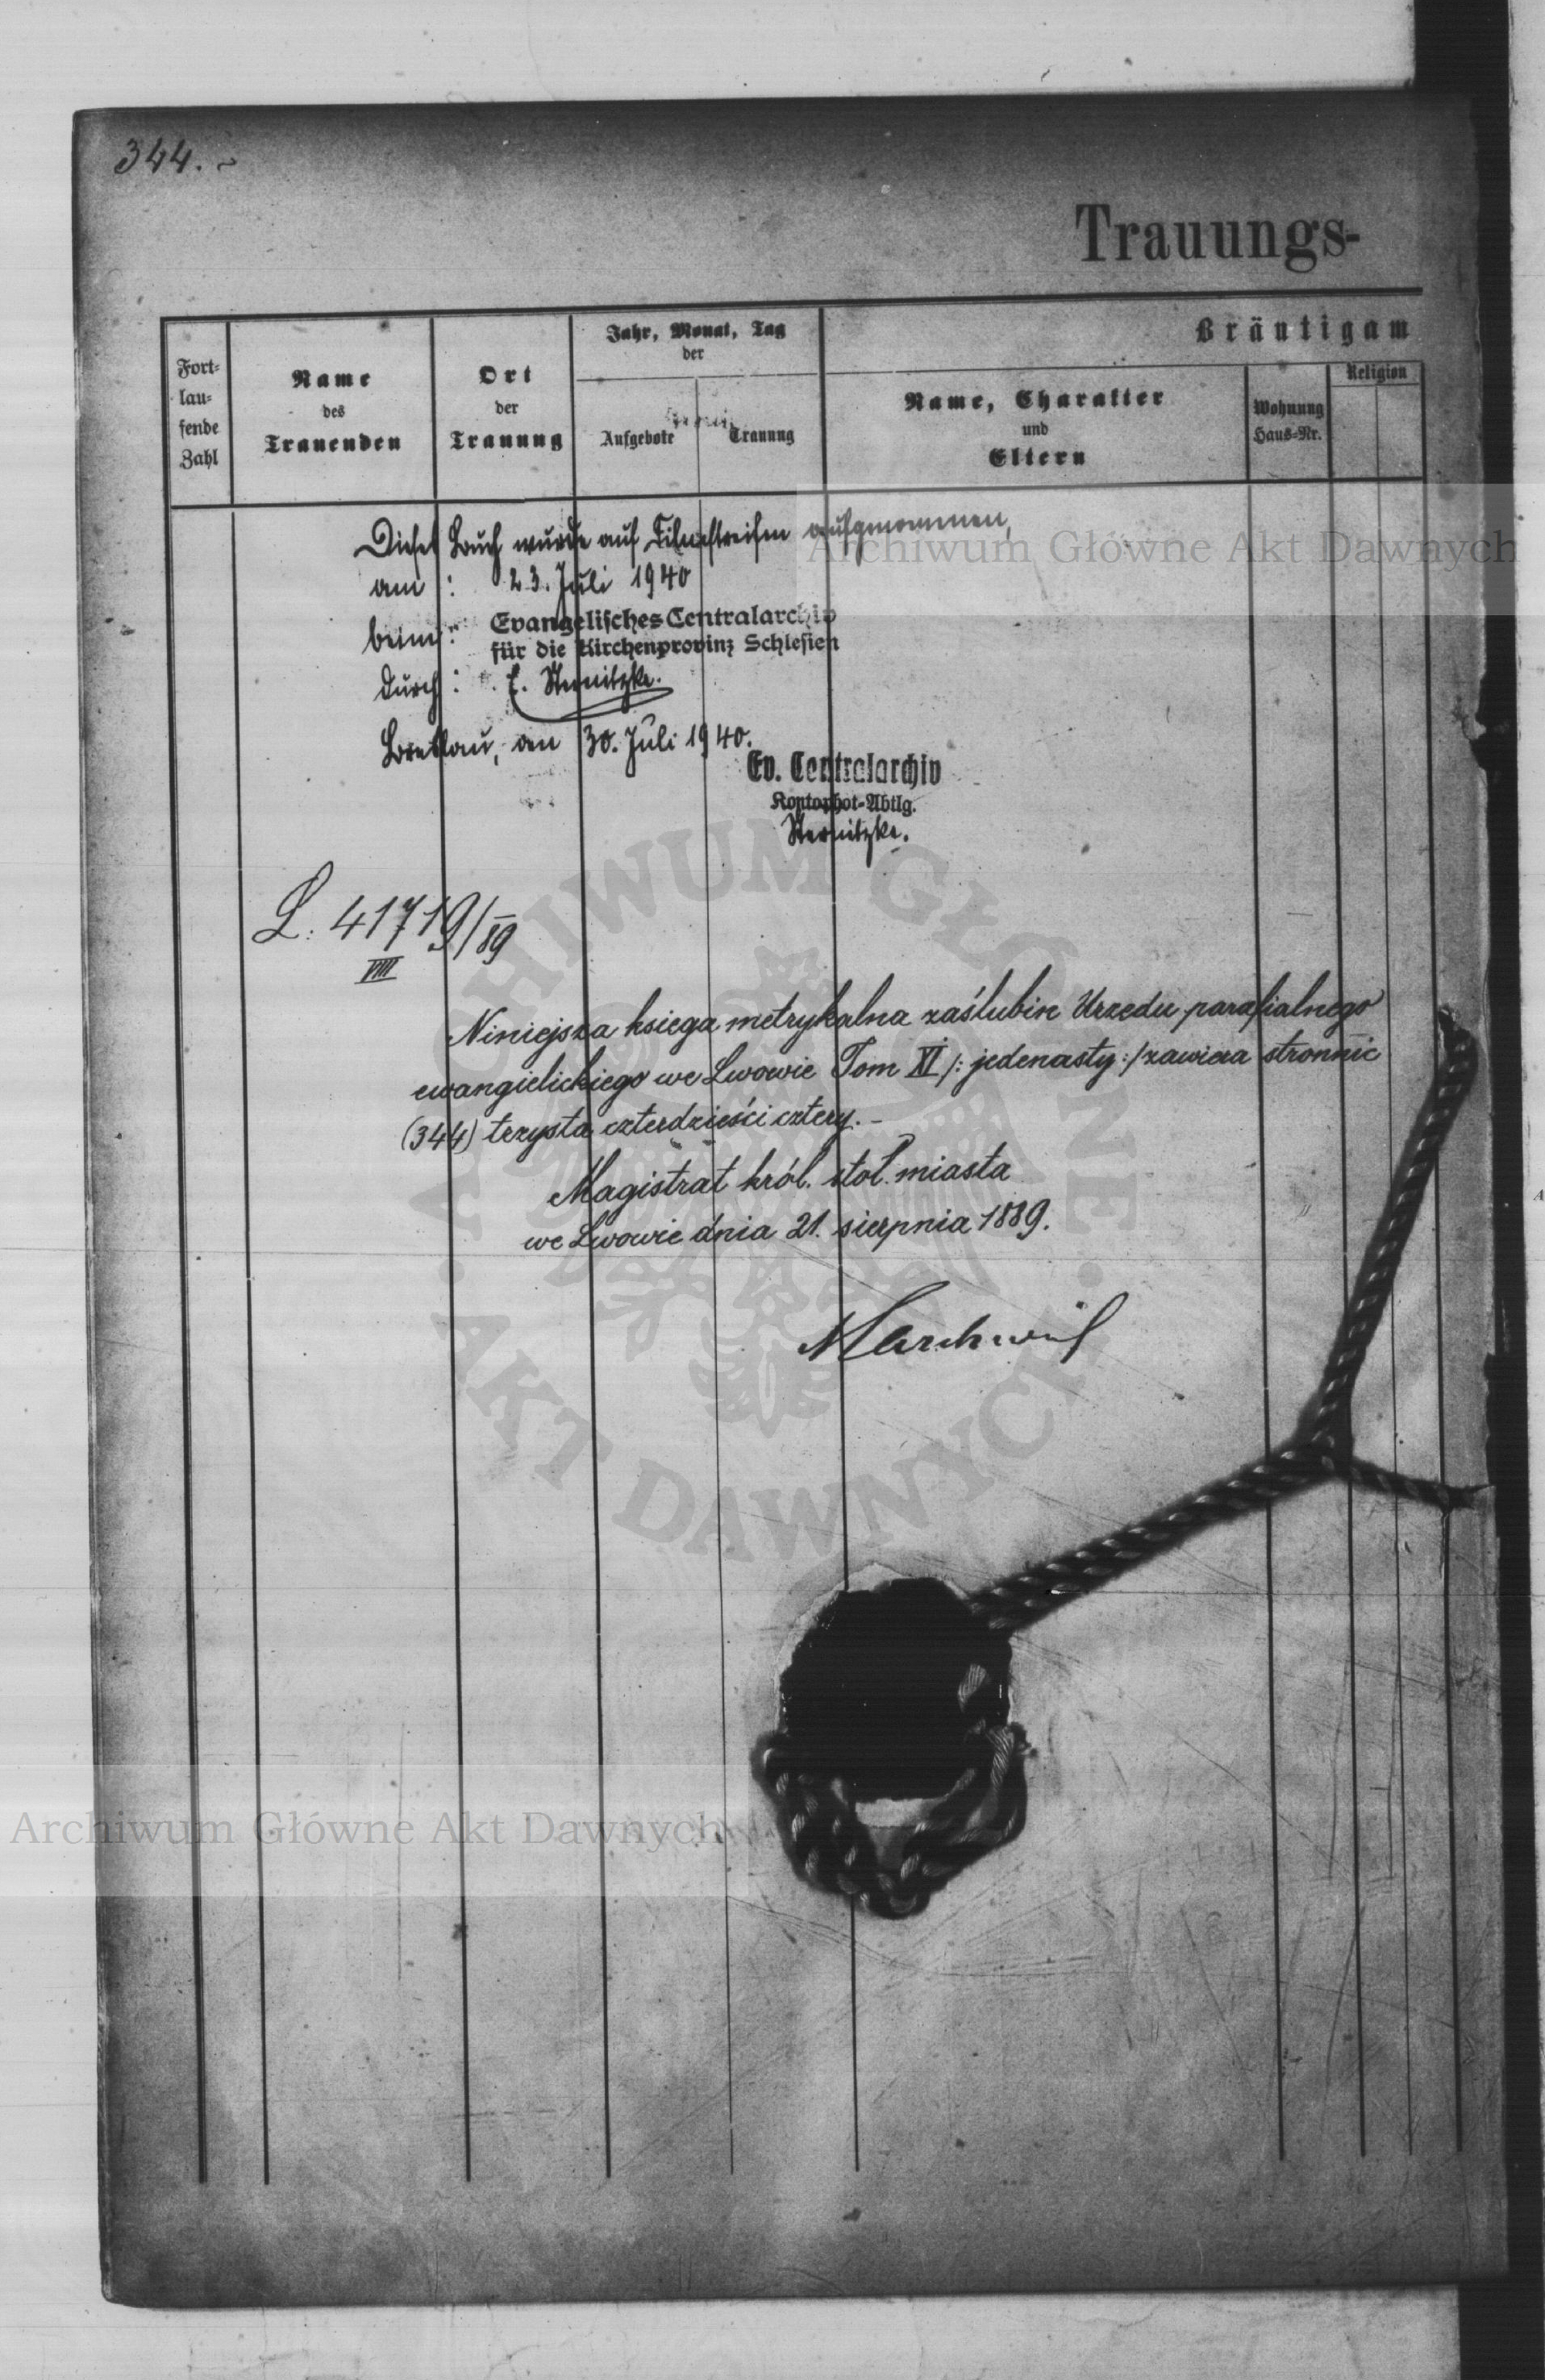 344.
Trauungs-
Fort-
lau-
fende
Zahl
Name
des
Trauenden
Ort
der
Trauung
Jahr, Monat, Tag
der
Aufgebote
Trauung
Bräutigam
Name, Charakter
und
Eltern
Wohnung
Haus-Nr.
Religion
Dieses Buch wurde auf Filmstreifen aufgenommen,
am : 23. Juli 1940
beim: Evangelisches Centralarchiv
für die Kirchenprovinz Schlesien
durch : E. Sternitzke.
Breslau, am 30. Juli 1940.
Ev. Centralarchiv
Kontophot-Abtlg.
Sternitzke.
L. 41719/89
VIII
Niniejsza księga metrykalna zaślubin Urzędu parafialnego
ewangielickiego we Lwowie Tom XI /: jedenasty :/ zawiera stronnic
(344) trzysta czterdzieści cztery. –
Magistrat król. stoł. miasta
we Lwowie dnia 21. sierpnia 1889.
Archiwum Główne Akt Dawnych
ARCHIWUM GŁÓWNE
AKT DAWNYCH
Archiwum Główne Akt Dawnych